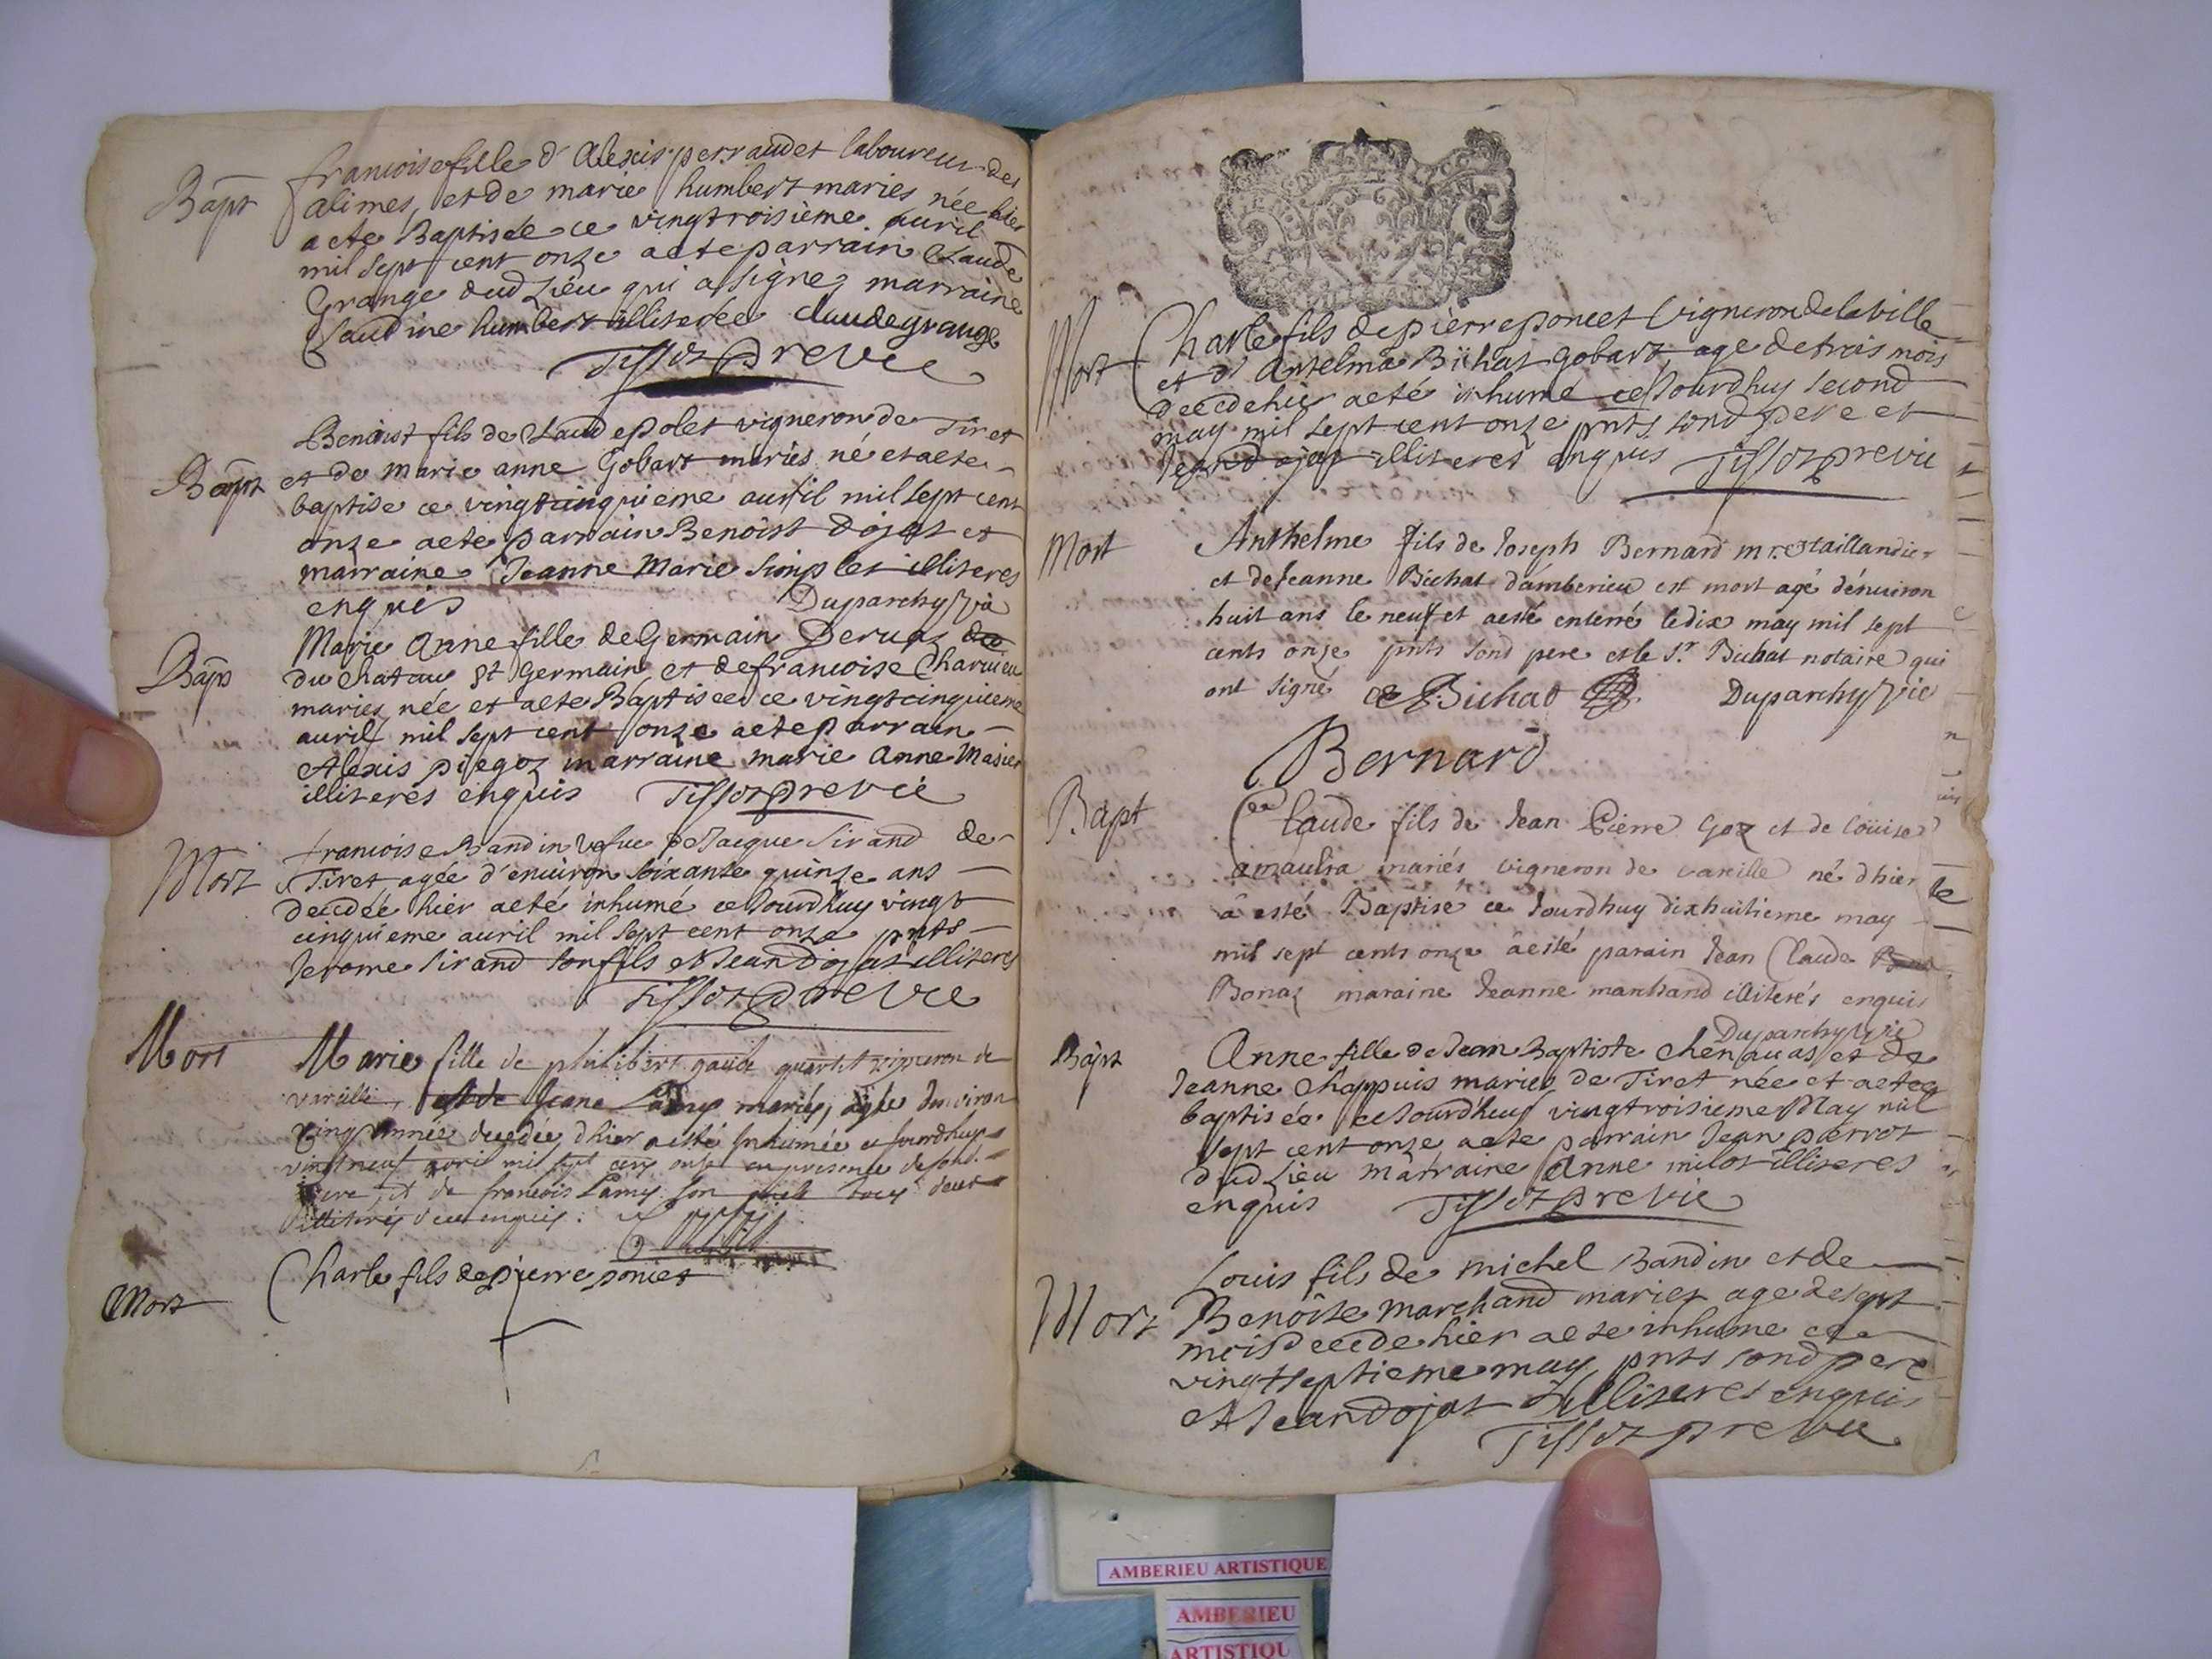 Bapt
francoise fille d'Alexis perraudet laboureur des
alimes, et de marie humbert maries née hier
a ete Baptisée ce vingtroisieme auril
mil sept cent onze a ete parrain Claude
Grange dud Lieu qui a signé marraine
Claudine humbert illiterée claude grange
Tissot previc
Bapt
Benoist fils de Claude polet vigneron de Tiret
et de Marie anne Gobart mariés né et a ete
baptise ce vingtcinquieme auril mil sept cent
onze a ete parrain Benoist Dojat et
marraine Jeanne Marie Simplet illiteres
enquis Duparchy Vic
Bap
Marie Anne fille de Germain Deruaz de
du chatau st Germain et de francoise Charuieu
maries née et a ete Baptisee ce vingtcinquieme
auril mil sept cent onze a ete parrain
Alexis piegoz marraine marie Anne Masier
illiterés enquis Tissot previc
Mort
francoise Bandin vefue de Jacque Sirand de
Tiret agée d'enuiron soixante quinze ans
decedée hier a eté inhumé ce Jourdhuy vingt
cinquieme auril mil sept cent onze pnts
Jerome Sirand son fils et Jean Dojat illiteres
Tissot previc
Mort
Marie fille de philibert gaudi quartet vigneron de
varille, et de Jeane Lamy mariés, agée denviron
cinq année decedée d'hier a esté Inhumée ce jourdhuy
vingt neuf avril mil sept cens onze en presence de sond
pere, et de francois Lamy son oncle tous deux
illiterés enquis.
Mort
Charle fils de pierre poncet
Mort
Charle fils de pierre poncet vigneron de la ville
et d'Antelma Bichat Gobart age de trois mois
decede hier a eté inhumé ce Jourdhuy second
may mil sept cent onze pnts sond pere et
Jean Dojat illiteres enquis Tissot previc
Mort
Anthelme fils de Joseph Bernard mre taillandier
et de Jeanne Bichat d'amberieu est mort agé d'enuiron
huit ans le neuf et a esté enterré le dix may mil sept
cents onze pnts sond pere et le Sr Bichat notaire qui
ont signé Bichat Duparchy Vic
Bernard
Bapt
Claude fils de Jean Pierre Goz et de Loüise
amaulra mariés vigneron de varille né d'hier
a esté Baptisé ce Jourdhuy dixhuitieme may
mil sept cents onze a esté parain Jean Claude
Bonaz maraine Jeanne marchand illiterés enquis
Duparchy Vic
Bapt
Anne fille de Jean Baptiste chenauas et de
Jeanne Chappuis maries de Tiret née et a ete
baptisée ce Jourd'huy vingtroisieme May mil
sept cent onze a ete parrain Jean pierrot
dud Lieu marraine Anne milot illiteres
enquis Tissot previc
Mort
Louis fils de michel Bandin et de
Benoite marchand maries age de sept
mois decede hier a ete inhume ce
vingtseptieme may pnts sond pere
et Jean Dojat illiteres enquis
Tissot previc
AMBERIEU ARTISTIQUE
AMBERIEU
ARTISTIQU